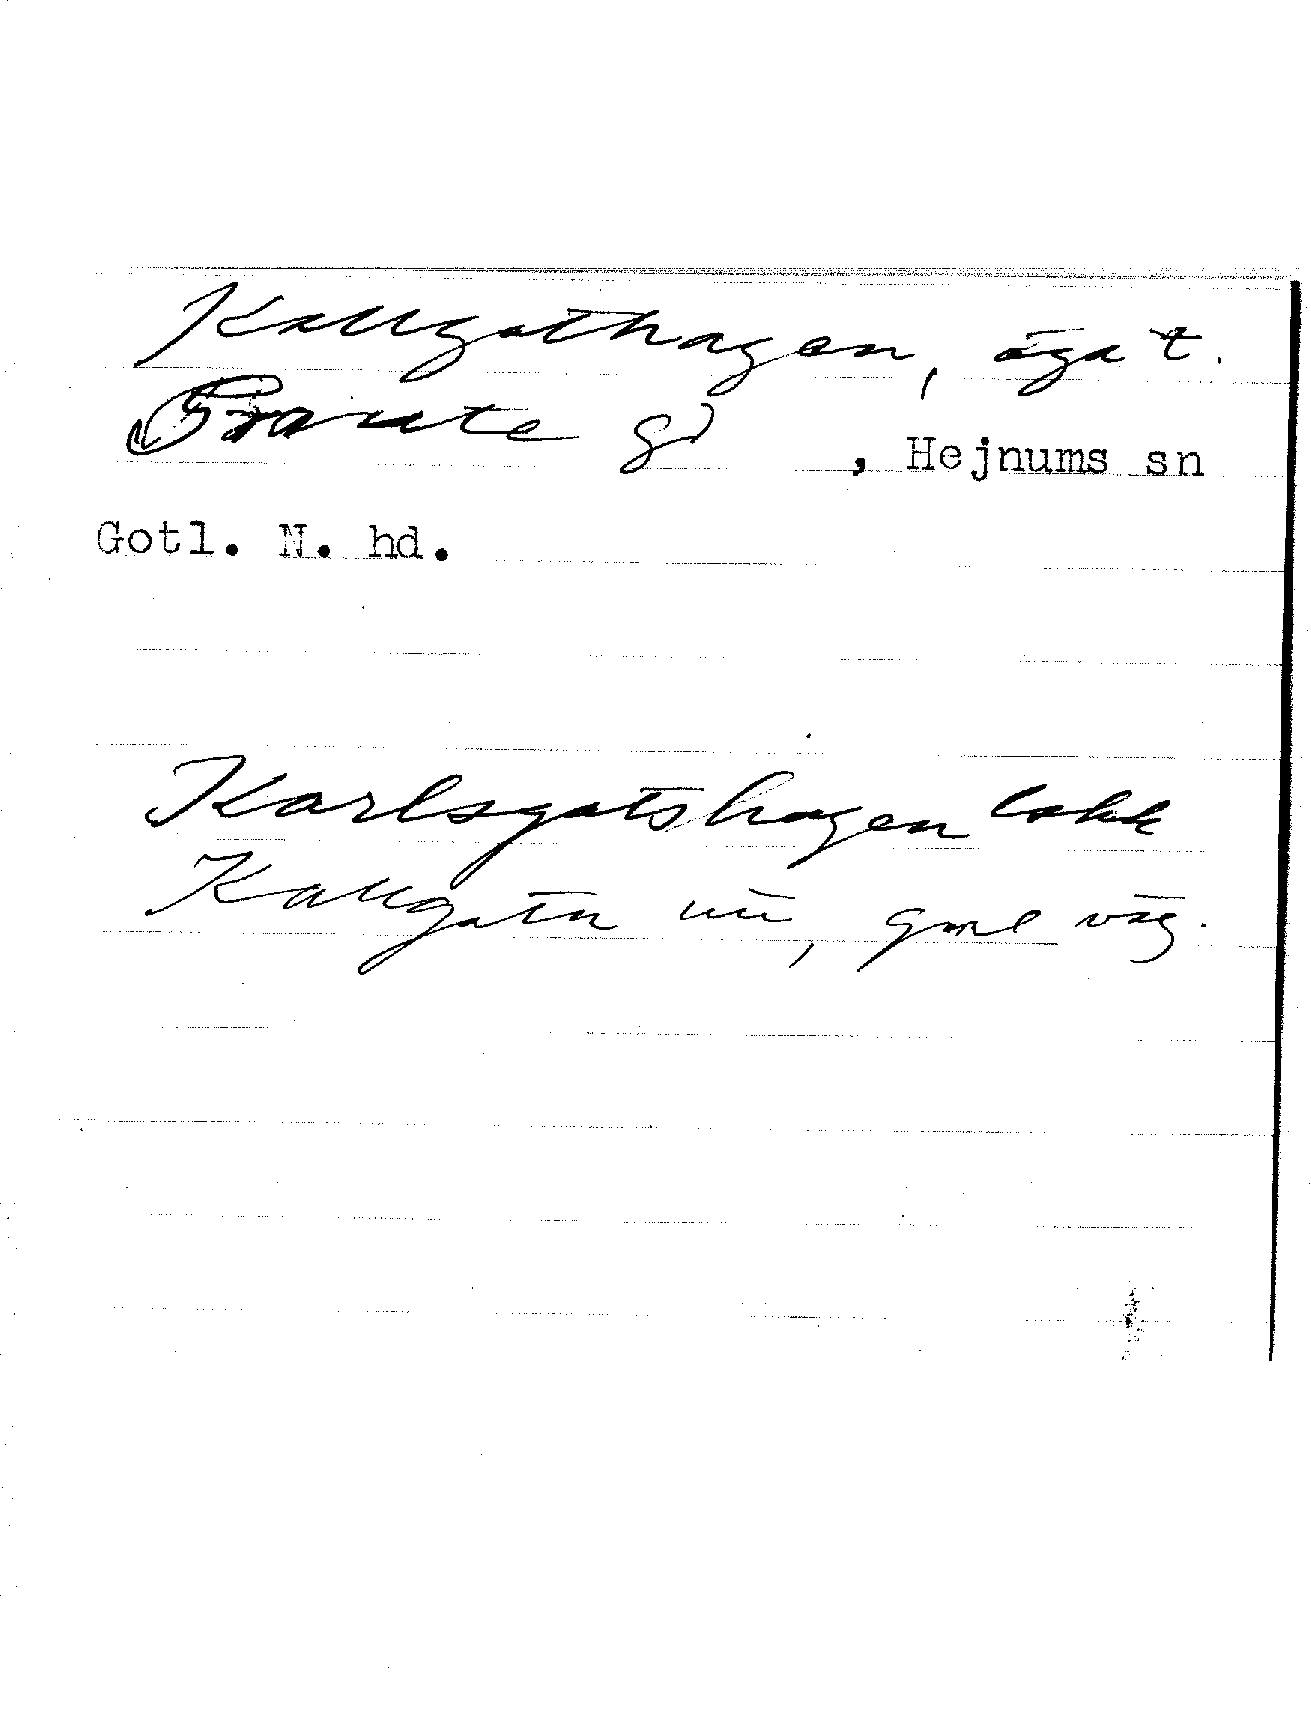 Kallgathagen, äga t.
Prante gd, Hejnums sn
Gotl. N. hd.
Karlsgatshagen lokk
Kallgatn nu, gml väg.